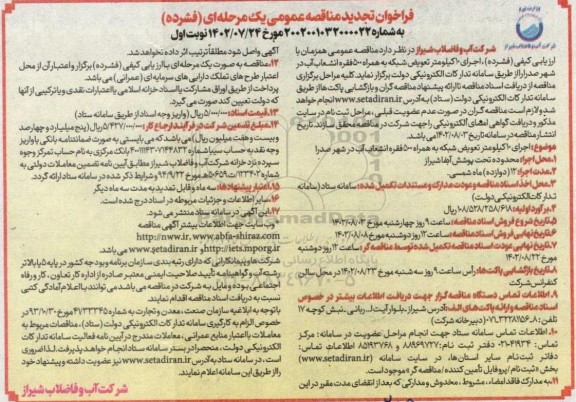 فراخوان تجدید مناقصه عمومی یک مرحله‌ای (فشرده)
به شماره ۲۰۰۲۰۰۱۰۳۲۰۰۰۰۲۲ مورخ ۱۴۰۲/۰۷/۲۴ نوبت اول
شرکت آب و فاضلاب شیراز
شرکت آب و فاضلاب شیراز در نظر دارد مناقصه عمومی همزمان با
ارزیابی کیفی (فشرده)، اجرای ۱۰ کیلومتر تعویض شبکه به همراه ۵۰۰ فقره انشعاب آب در
شهر صدرا را از طریق سامانه تدارکات الکترونیکی دولت برگزار نماید. کلیه مراحل برگزاری
مناقصه از دریافت اسناد مناقصه تا ارائه پیشنهاد مناقصه گران و بازگشایی پاکت‌ها از طریق
سامانه تدارکات الکترونیکی دولت (ستاد) به آدرس www.setadiran.ir انجام خواهد
شد و لازم است مناقصه گران در صورت عدم عضویت قبلی، مراحل ثبت نام در سایت
مذکور و دریافت گواهی امضای الکترونیکی را جهت شرکت در مناقصه محقق سازند. تاریخ
انتشار مناقصه در سامانه تاریخ ۱۴۰۲/۰۸/۰۲ می‌باشد.
موضوع: اجرای ۱۰ کیلومتر تعویض شبکه به همراه ۵۰۰ فقره انشعاب آب در شهر صدرا
۱. محل اجرا: محدوده تحت پوشش آبفا شیراز
۲. مدت اجرا: ۱۲ (دوازده) ماه شمسی.
۳. محل اخذ اسناد مناقصه و عودت مدارک و مستندات تکمیل شده: سامانه ستاد (سامانه
تدارکات الکترونیکی دولت)
۵. تاریخ شروع فروش اسناد مناقصه: ساعت ۹ روز چهارشنبه مورخ ۱۴۰۲/۰۸/۰۳
۶. تاریخ نهایی فروش اسناد مناقصه: ساعت ۱۳ روز دوشنبه مورخ ۱۴۰۲/۰۸/۰۸
۷. تاریخ نهایی عودت اسناد مناقصه تکمیل شده توسط مناقصه گر: ساعت ۱۳ روز دوشنبه
مورخ ۱۴۰۲/۰۸/۲۲
۸. تاریخ بازگشایی پاکت‌ها: رأس ساعت ۹ روز سه شنبه مورخ ۱۴۰۲/۰۸/۲۳ در محل سالن
کنفرانس شرکت
۹. اطلاعات تماس دستگاه مناقصه گزار جهت دریافت اطلاعات بیشتر در خصوص
اسناد مناقصه و ارائه پاکت‌های الف: آدرس شیراز، بلوار آیت‌ا... ربانی، نبش کوچه ۱۷
(دبیرخانه شرکت)
۱۰. اطلاعات تماس سامانه ستاد جهت انجام مراحل عضویت در سامانه: مرکز
تماس ۴۱۹۳۴-۰۲۱ دفتر ثبت نام: ۸۸۹۶۹۷۳۷ و ۸۵۱۹۳۷۶۸ اطلاعات تماس
دفاتر ثبت نام سایر استان‌ها، در سایت سامانه (www.setadiran.ir)
بخش «ثبت نام / پروفایل تأمین کننده / مناقصه گر» موجود است.
۱۱. به مدارک فاقد امضاء، مشروط، مخدوش و مدارکی که بعد از انقضای مدت مقرر در این
آگهی واصل شود مطلقاً ترتیب اثر داده نخواهد شد.
۱۲. مناقصه به صورت یک مرحله‌ای با ارزیابی کیفی (فشرده) برگزار و اعتبار آن از محل
اعتبار طرح های تملک دارایی های سرمایه‌ای (عمرانی) می باشد.
پرداخت از طریق اوراق مشارکت یا اسناد خزانه اسلامی یا اعتبارات نقدی و یا ترکیبی از آنها
که دولت تعیین کند صورت می‌گیرد.
۱۴. مبلغ تضمین شرکت در فرآیند ارجاع کار: ۵/۴۲۷/۰۰۰/۰۰۰ ریال (پنج میلیارد و چهارصد
و بیست و هفت میلیون ریال) می باشد که می بایستی به صورت ضمانتنامه بانکی یا واریز
۱۵. اعتبار پیشنهادها: سه ماه و قابل تمدید به مدت سه ماه دیگر
۱۶. سایر اطلاعات و جزئیات مربوطه در اسناد درج شده است.
۱۷. این آگهی در سامانه ستاد منتشر می شود.
وب سایت جهت اطلاعات بیشتر آگهی مناقصه
www.abfa-shiraz.com
http://iets.mporg.ir و www.setadiran.ir می باشد.
شرکت‌ها و پیمانکارانی که دارای رتبه بندی سازمان برنامه و بودجه کشور در پایه ۵ یا بالاتر
رشته آب و گواهینامه تأیید صلاحیت ایمنی معتبر صادره از اداره کار تعاون، کار و رفاه
اجتماعی بوده و مایل به شرکت در مناقصه می باشند می توانند با اعلام آمادگی کتبی
نسبت به دریافت اسناد مناقصه اقدام نمایند.
خصوص الزام به کارگیری سامانه تدارکات الکترونیکی دولت (ستاد)، مناقصات مربوط به
معاملات با اعتبار منابع عمرانی، معاملات مندرج در آیین نامه فعالیت سامانه تدارکات
الکترونیکی دولت، منحصراً در بستر سامانه ستاد انجام خواهد پذیرفت. لذا ضروری
است، در سامانه ستاد به آدرس www.setadiran.ir نیز عضویت داشته و پیشنهاد خود
را از طریق این سامانه اعلام نمایند.
شرکت آب و فاضلاب شیراز